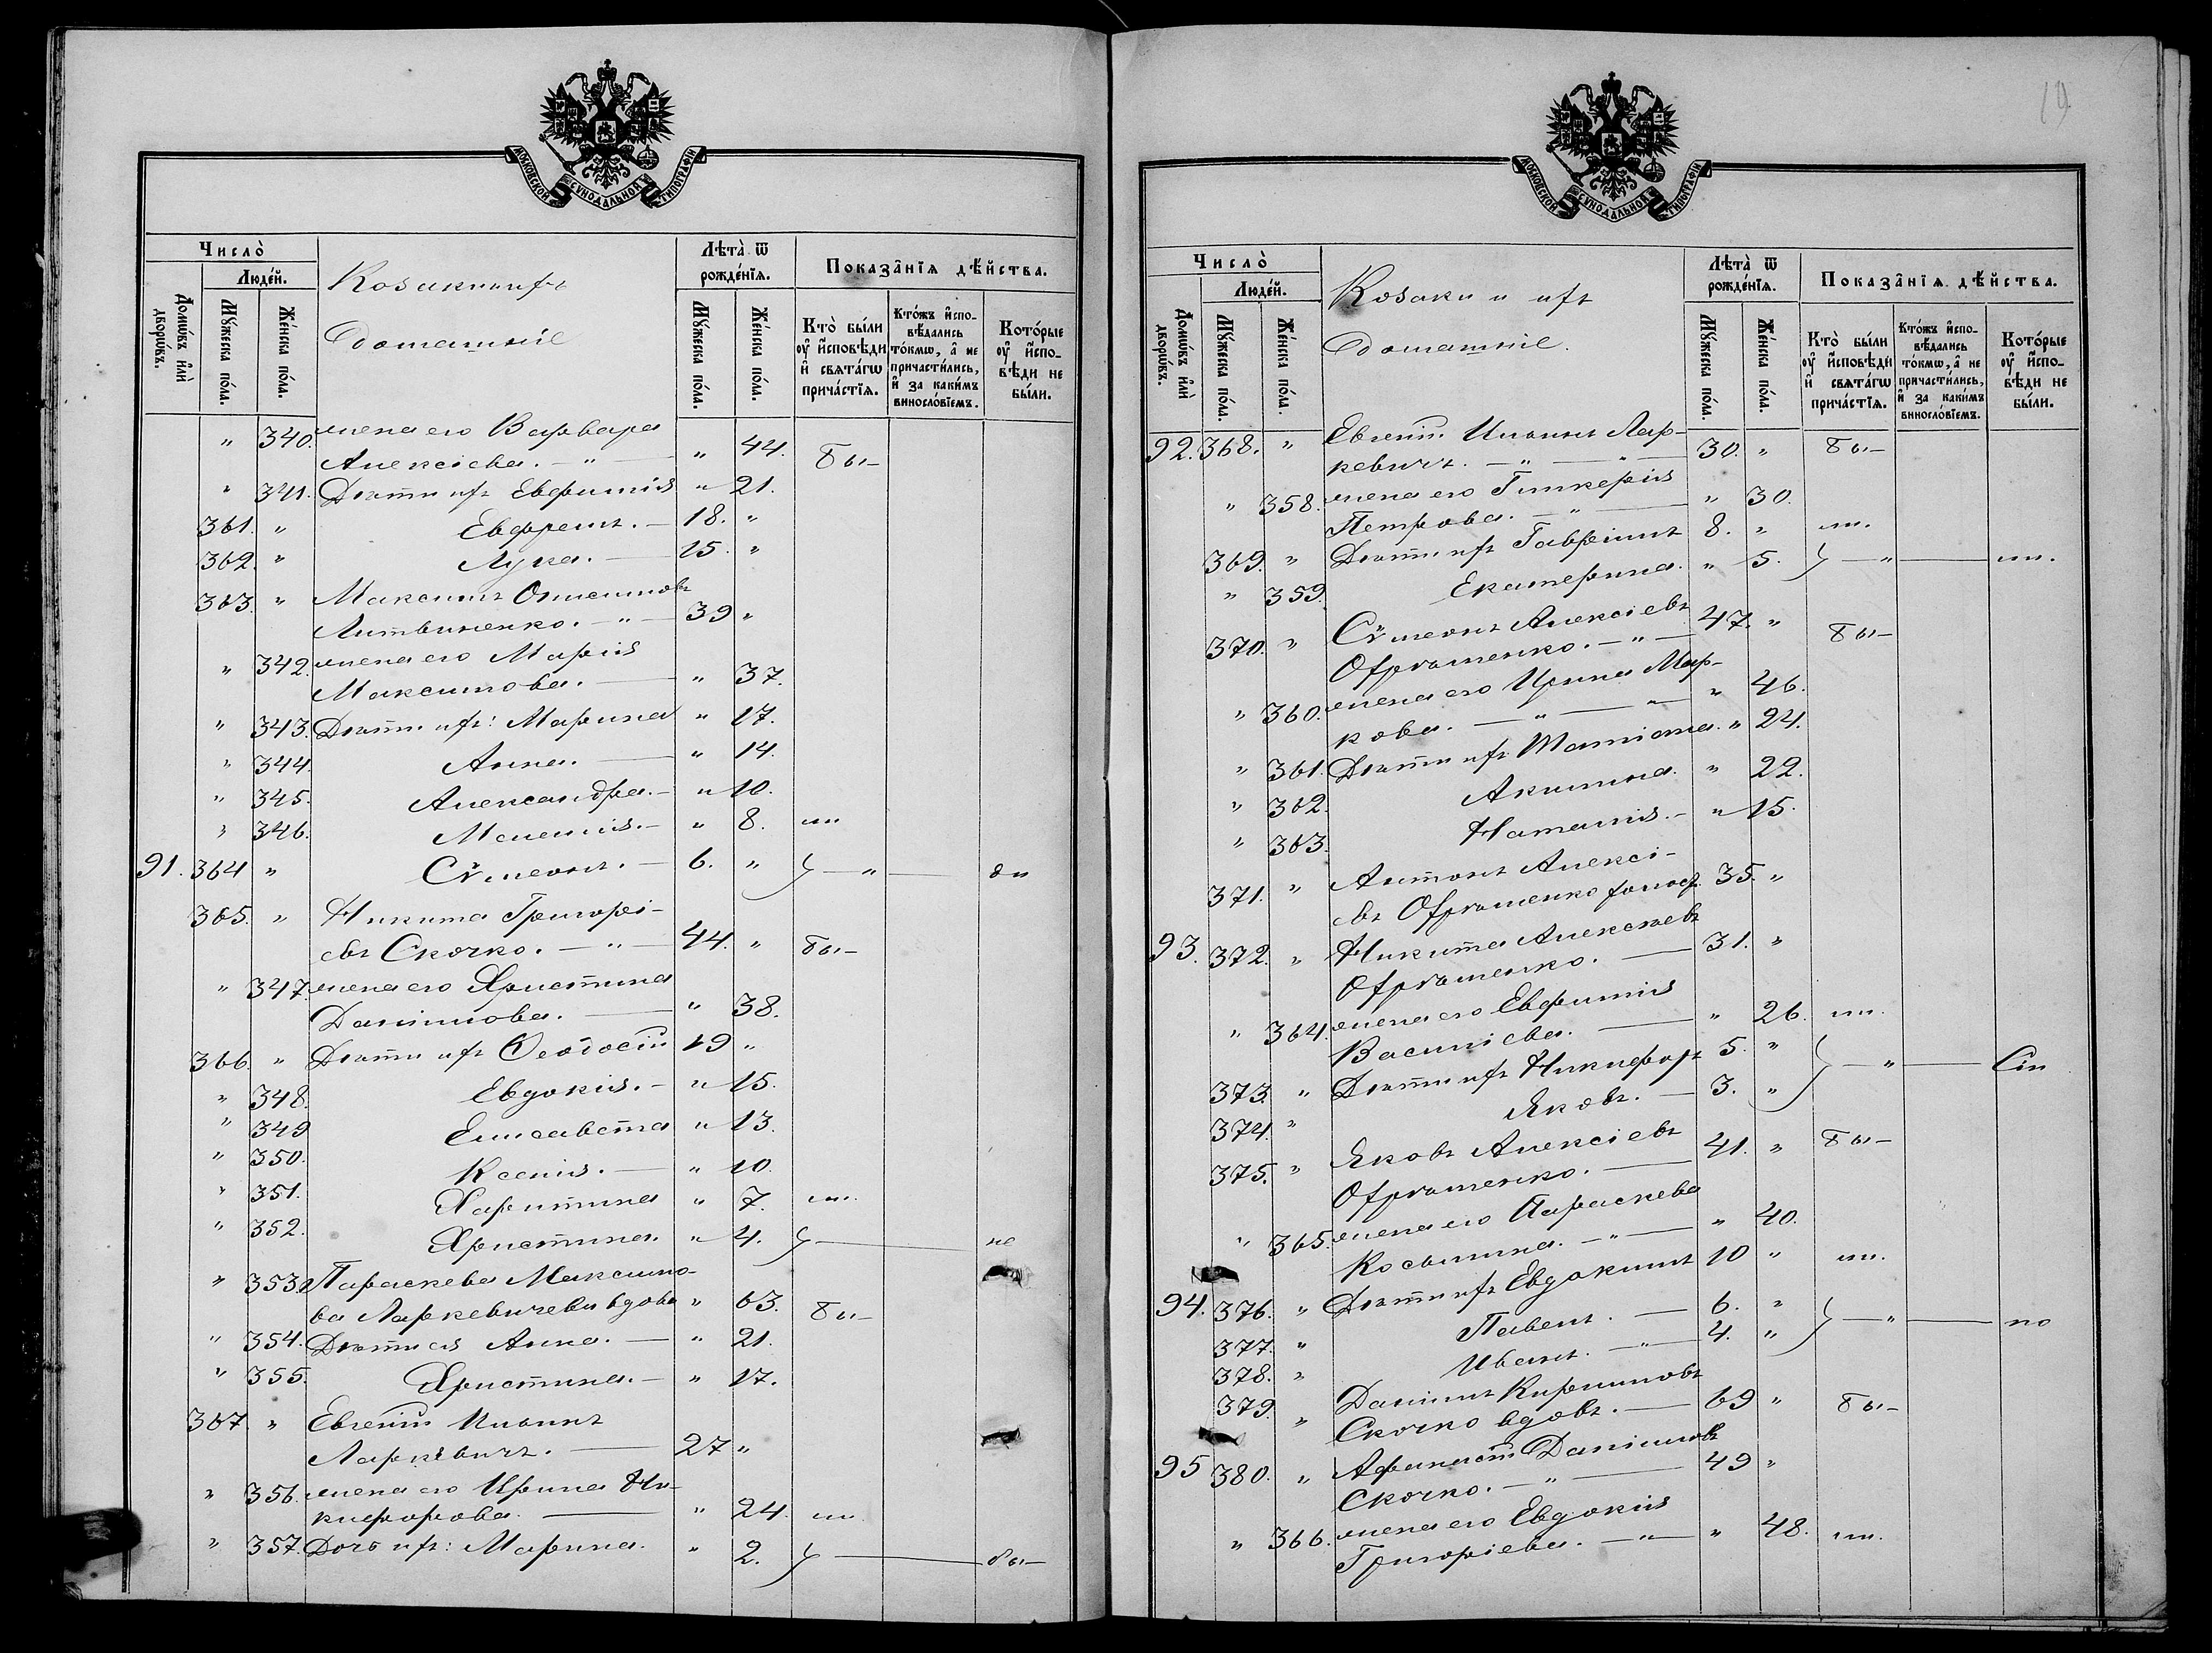 МОСКОВСКОЙ СѴНОДАЛЬНОЙ ТИПОГРАФІИ
Число̀
Люде́й.
Домѡ́въ и҆лѝ дворѡ́въ.
Мꙋ́жеска по́ла.
Же́нска по́ла.
Козаки и ихъ
домашніе
Лѣта̀ ѿ рожде́нїѧ.
Мꙋ́жеска по́ла.
Же́нска по́ла.
Показа̑нїѧ дѣ́йства.
Кто̀ бы́ли ᲂу҆ и҆́сповѣди и҆ свѧта́гѡ прича́стїѧ.
Кто́жъ и҆спо-вѣ́дались то́кмѡ, а҆ не причасти́лись, и҆ за каки́мъ виносло́вїемъ.
Кото́рые ᲂу҆ и҆́спо-вѣди не бы́ли.
" 340. жена его Варвара
Алексіева. — " — " 44. бы-
" 341. Дѣти ихъ Евфимія " 21.
361. " Ефремъ. — 18. "
362. " Лука. — 15. "
363. " Максимъ Онисимовъ
Литвиненко. — " — 39 "
" 342. жена его Марія
Максимова. — " 37.
" 343. Дѣти ихъ: Марина " 17.
" 344. Анна. — " 14.
" 345. Александра. — " 10.
" 346. Меланія. — " 8. ли
91. 364 " Сѵмеонъ. — 6. " } — " —
365. " Никита Григорі-
евъ Скочко. — " — 44. " бы-
" 347. жена его Христина
Даніилова. — " 38.
366. " Дѣти ихъ Ѳеодосій 19 "
" 348. Евдокія. — " 15.
" 349 Елисавета " 13.
" 350. Ксенія. — " 10.
" 351. Харитина " 7. ли.
" 352. Христина. " 4. } — не
" 353. Параскева Максимо-
ваЛаркевичева вдова " 63. бы-
" 354. Дѣти ея Анна. — " 21.
" 355. Христина. — " 17.
367. " Евгеній Иоаннъ
Ларкевичъ. — 27 "
" 356. жена его Ирина Ни-
кифорова. — " 24. ли
" 357. Дочь ихъ: Марина. " 2. } — бы-
19
МОСКОВСКОЙ СѴНОДАЛЬНОЙ ТИПОГРАФІИ
Число̀
Люде́й.
Домѡ́въ и҆лѝ дворѡ́въ.
Мꙋ́жеска по́ла.
Же́нска по́ла.
Козаки и ихъ
домашніе.
Лѣта̀ ѿ рожде́нїѧ.
Мꙋ́жеска по́ла.
Же́нска по́ла.
Показа̑нїѧ дѣ́йства.
Кто̀ бы́ли ᲂу҆ и҆́сповѣди и҆ свѧта́гѡ прича́стїѧ.
Кто́жъ и҆спо-вѣ́дались то́кмѡ, а҆ не причасти́лись, и҆ за каки́мъ виносло́вїемъ.
Кото́рые ᲂу҆ и҆́спо-вѣди не бы́ли.
92. 368. " Евгеній Иоаннъ Лар-
кевичъ. — " — " 30. " бы-
" 358. жена его Гликерія
Петрова. — " — " 30.
369. " Дѣти ихъ Гавріилъ 8. " ли.
" 359. Екатерина. " 5. } — " — ли.
370. " Сѵмеонъ Алексіевъ
Охрѣменко. — " — 47. " бы-
" 360. жена его Ирина Мар-
кова. — " — " " 46.
" 361. Дѣти ихъ Татіана. " 24.
" 362. Акилина. " 22.
" 363. Наталія. — " 15.
371. " Антонъ Алексі-
евъ Охрѣменко холост. 35. "
93. 372. " Никита Алексіевъ
Охрѣменко. — 31. "
" 364. жена его Евфимія
Василіева. — " 26. ли.
373. " Дѣти ихъ Никифоръ 5. " } — " —
374. " Яковъ. — 3. "
375. " Яковъ Алексіевъ
Охрѣменко. — 41. " бы-
" 365. жена его Параскева
Космина. — " — " 40.
94. 376. " Дѣти ихъ Евдокимъ 10 " ли.
377. " Павелъ. — 6. " } — " —
378. " Иванъ. — " 4. "
379. " Даніилъ Кирилловъ
Скочко вдовъ. — 69 " бы-
95 380. " Афанасій Даніиловъ
Скочко. — " — 49 "
" 366. жена его Евдокія
Григоріева. — " — " 48. ли.